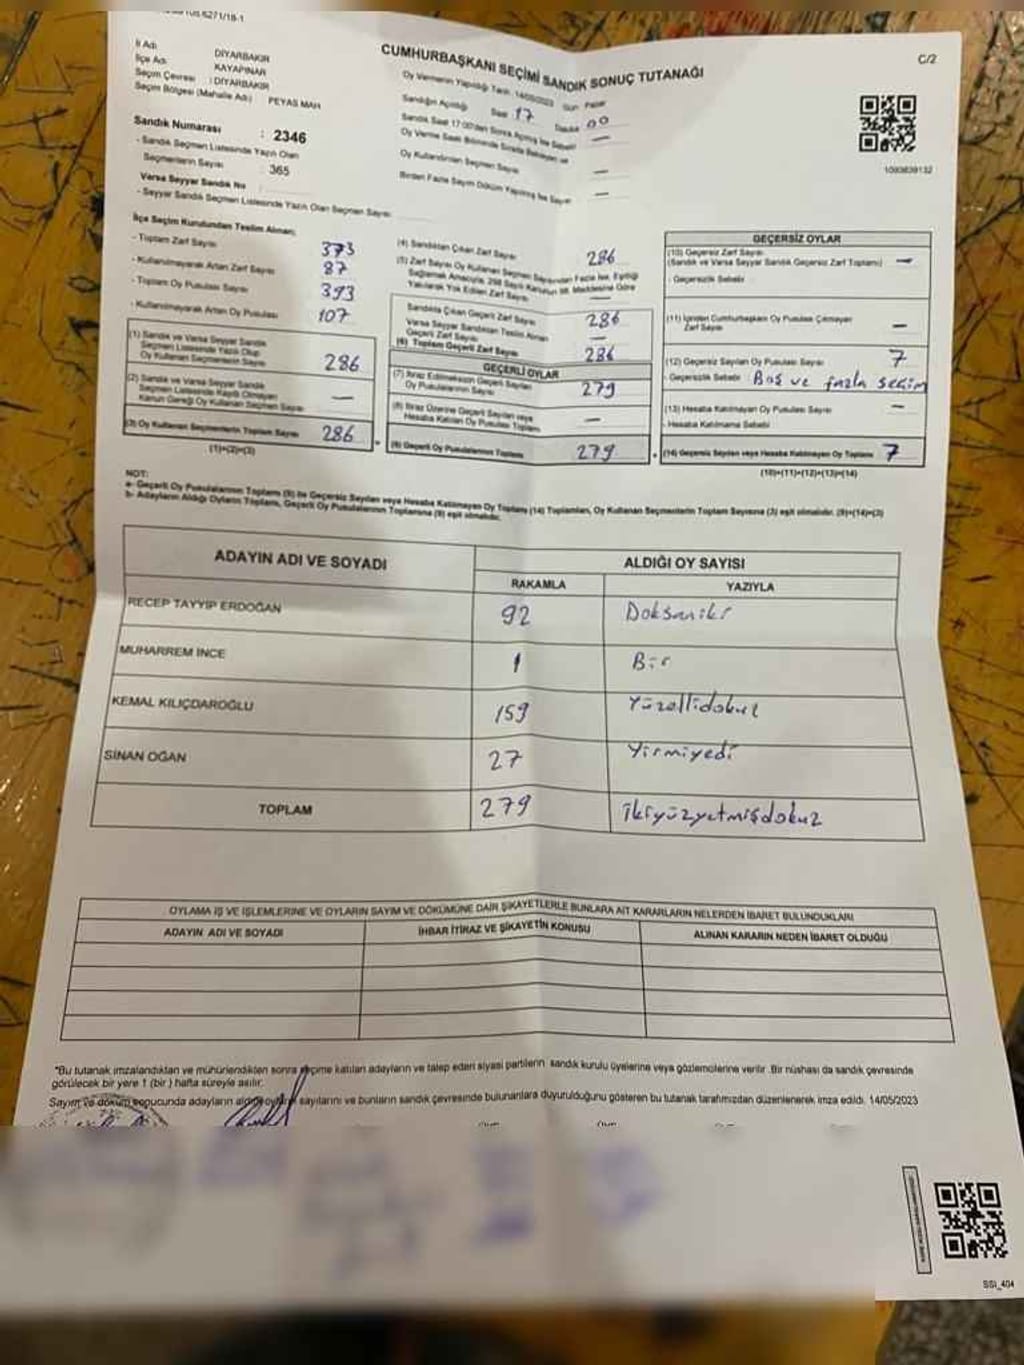 6271/18-1
CUMHURBAŞKANI SEÇİMİ SANDIK SONUÇ TUTANAĞI
C/2
İl Adı DİYARBAKIR
İlçe Adı KAYAPINAR
Seçim Çevresi : DİYARBAKIR
Seçim Bölgesi (Mahalle Adı) PEYAS MAH
Oy Vermenin Yapıldığı Tarih 14/05/2023 Gün Pazar
Sandığın Açıldığı Saat 17 Dakika 00
Sandık Saat 17:00'den Sonra Açılmış İse Sebebi —
Oy Kullandırılan Seçmen Sayısı —
Birden Fazla Sayım Döküm Yapılmış İse Sayısı —
1093839132
Sandık Numarası : 2346
- Sandık Seçmen Listesinde Yazılı Olan
Seçmenlerin Sayısı : 365
Varsa Seyyar Sandık No :
- Seyyar Sandık Seçmen Listesinde Yazılı Olan Seçmen Sayısı
İlçe Seçim Kurulundan Teslim Alınan;
- Toplam Zarf Sayısı 373
- Kullanılmayarak Artan Zarf Sayısı 87
- Toplam Oy Pusulası Sayısı 393
- Kullanılmayarak Artan Oy Pusulası 107
(1) Sandık ve Varsa Seyyar Sandık
Seçmen Listesinde Yazılı Olup
Oy Kullanan Seçmenlerin Sayısı 286
(2) Sandık ve Varsa Seyyar Sandık
Seçmen Listesinde Kayıtlı Olmayan
Kanun Gereği Oy Kullanan Seçmen Sayısı —
(3) Oy Kullanan Seçmenlerin Toplam Sayısı 286
(1)+(2)=(3)
(4) Sandıktan Çıkan Zarf Sayısı 286
(5) Zarf Sayısı Oy Kullanan Seçmen Sayısından Fazla İse, Eşitliği
Sağlamak Amacıyla, 298 Sayılı Kanunun 98. Maddesine Göre
Yakılarak Yok Edilen Zarf Sayısı —
Sandıkta Çıkan Geçerli Zarf Sayısı 286
Varsa Seyyar Sandıktan Teslim Alınan
Geçerli Zarf Sayısı —
(6) Toplam Geçerli Zarf Sayısı 286
GEÇERLİ OYLAR
(7) İtiraz Edilmeksizin Geçerli Sayılan
Oy Pusulalarının Sayısı 279
(8) İtiraz Üzerine Geçerli Sayılan veya
Hesaba Katılan Oy Pusulaları Toplamı —
(9) Geçerli Oy Pusulalarının Toplamı 279
GEÇERSİZ OYLAR
(10) Geçersiz Zarf Sayısı
(Sandık ve Varsa Seyyar Sandık Geçersiz Zarf Toplamı) —
- Geçersizlik Sebebi
(11) İçinden Cumhurbaşkanı Oy Pusulası Çıkmayan
Zarf Sayısı —
(12) Geçersiz Sayılan Oy Pusulası Sayısı 7
- Geçersizlik Sebebi Boş ve fazla seçim
(13) Hesaba Katılmayan Oy Pusulası Sayısı —
- Hesaba Katılmama Sebebi
(14) Geçersiz Sayılan veya Hesaba Katılmayan Oy Toplamı 7
(10)+(11)+(12)+(13)=(14)
NOT:
a- Geçerli Oy Pusulalarının Toplamı (9) ile Geçersiz Sayılan veya Hesaba Katılmayan Oy Toplamı (14) Toplamları, Oy Kullanan Seçmenlerin Toplam Sayısına (3) eşit olmalıdır. (9)+(14)=(3)
b- Adayların Aldığı Oyların Toplamı, Geçerli Oy Pusulalarının Toplamına (9) eşit olmalıdır.
ADAYIN ADI VE SOYADI ALDIĞI OY SAYISI
RAKAMLA YAZIYLA
RECEP TAYYİP ERDOĞAN 92 Doksaniki
MUHARREM İNCE 1 Bir
KEMAL KILIÇDAROĞLU 159 Yüzellidokuz
SİNAN OĞAN 27 Yirmiyedi
TOPLAM 279 ikiyüzyetmişdokuz
OYLAMA İŞ VE İŞLEMLERİNE VE OYLARIN SAYIM VE DÖKÜMÜNE DAİR ŞİKAYETLERLE BUNLARA AİT KARARLARIN NELERDEN İBARET BULUNDUKLARI
ADAYIN ADI VE SOYADI İHBAR İTİRAZ VE ŞİKAYETİN KONUSU ALINAN KARARIN NEDEN İBARET OLDUĞU
"Bu tutanak imzalandıktan ve mühürlendikten sonra seçime katılan adayların ve talep eden siyasi partilerin sandık kurulu üyelerine veya gözlemcilerine verilir. Bir nüshası da sandık çevresinde
görülecek bir yere 1 (bir) hafta süreyle asılır.
Sayım ve döküm sonucunda adayların aldığı oyların sayılarını ve bunların sandık çevresinde bulunanlara duyurulduğunu gösteren bu tutanak tarafımızdan düzenlenerek imza edildi. 14/05/2023
SSI_404